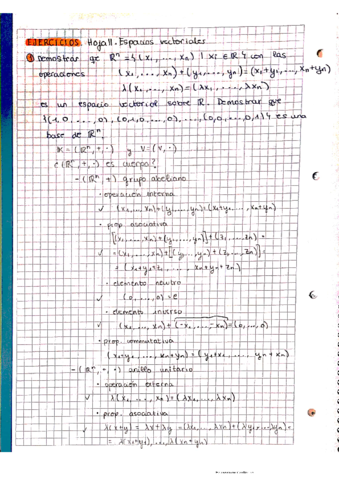 EJERCICIOS Hoja II. Espacios vectoriales
① Demostrar que ℝⁿ = {(x₁, ..., xₙ) | xᵢ ∈ ℝ} con las
operaciones (x₁, ..., xₙ) + (y₁, ..., yₙ) = (x₁+y₁, ..., xₙ+yₙ)
λ(x₁, ..., xₙ) = (λx₁, ..., λxₙ)
es un espacio vectorial sobre ℝ. Demostrar que
{(1, 0, ..., 0), (0, 1, 0, ..., 0), ..., (0, 0, ..., 0, 1)} es una
base de ℝⁿ.
K = (ℝⁿ, +, ·) y V = (V, ·)
¿(ℝⁿ, +, ·) es cuerpo?
- (ℝⁿ, +) grupo abeliano
· operación interna
✓ (x₁, ..., xₙ) + (y₁, ..., yₙ) = (x₁+y₁, ..., xₙ+yₙ)
· prop. asociativa
[(x₁, ..., xₙ) + (y₁, ..., yₙ)] + (z₁, ..., zₙ) =
✓ = (x₁, ..., xₙ) + [(y₁, ..., yₙ) + (z₁, ..., zₙ)] =
= (x₁+y₁+z₁, ..., xₙ+yₙ+zₙ)
· elemento neutro
✓ (0, ..., 0) = e
· elemento inverso
✓ (x₁, ..., xₙ) + (-x₁, ..., -xₙ) = (0, ..., 0)
· prop. conmutativa
(x₁+y₁, ..., xₙ+yₙ) = (y₁+x₁, ..., yₙ+xₙ)
- (ℝⁿ, +, ·) anillo unitario
· operación externa
✓ λ(x₁, ..., xₙ) = (λx₁, ..., λxₙ)
· prop. asociativa
✓ λ(x+y) = λx + λy = (λx₁, ..., λxₙ) + (λy₁, ..., λyₙ) =
= λ(x₁+y₁), ..., λ(xₙ+yₙ)